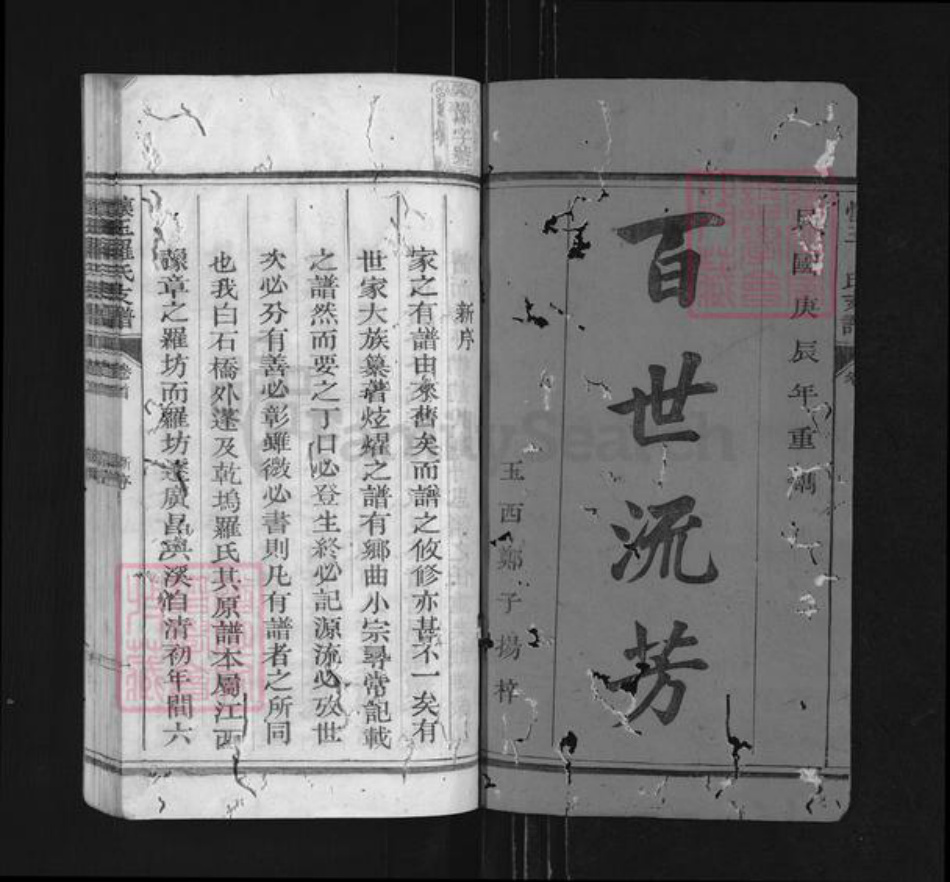 民國庚辰年重鐫
百世流芳
玉西鄭子揚梓
新序
家之有譜由來舊矣而譜之攸修亦甚不一矣有
世家大族纂著炫耀之譜有鄉曲小宗尋常記載
之譜然而要之丁口必登生終必記源流必攷世
次必分有善必彰雖微必書則凡有譜者之所同
也我白石橋外蓬及乾塢羅氏其原譜本屬江西
豫章之羅坊而羅坊遷廣昌澳溪洎清初年間六
羅氏支譜
卷首
新序
FamilySearch